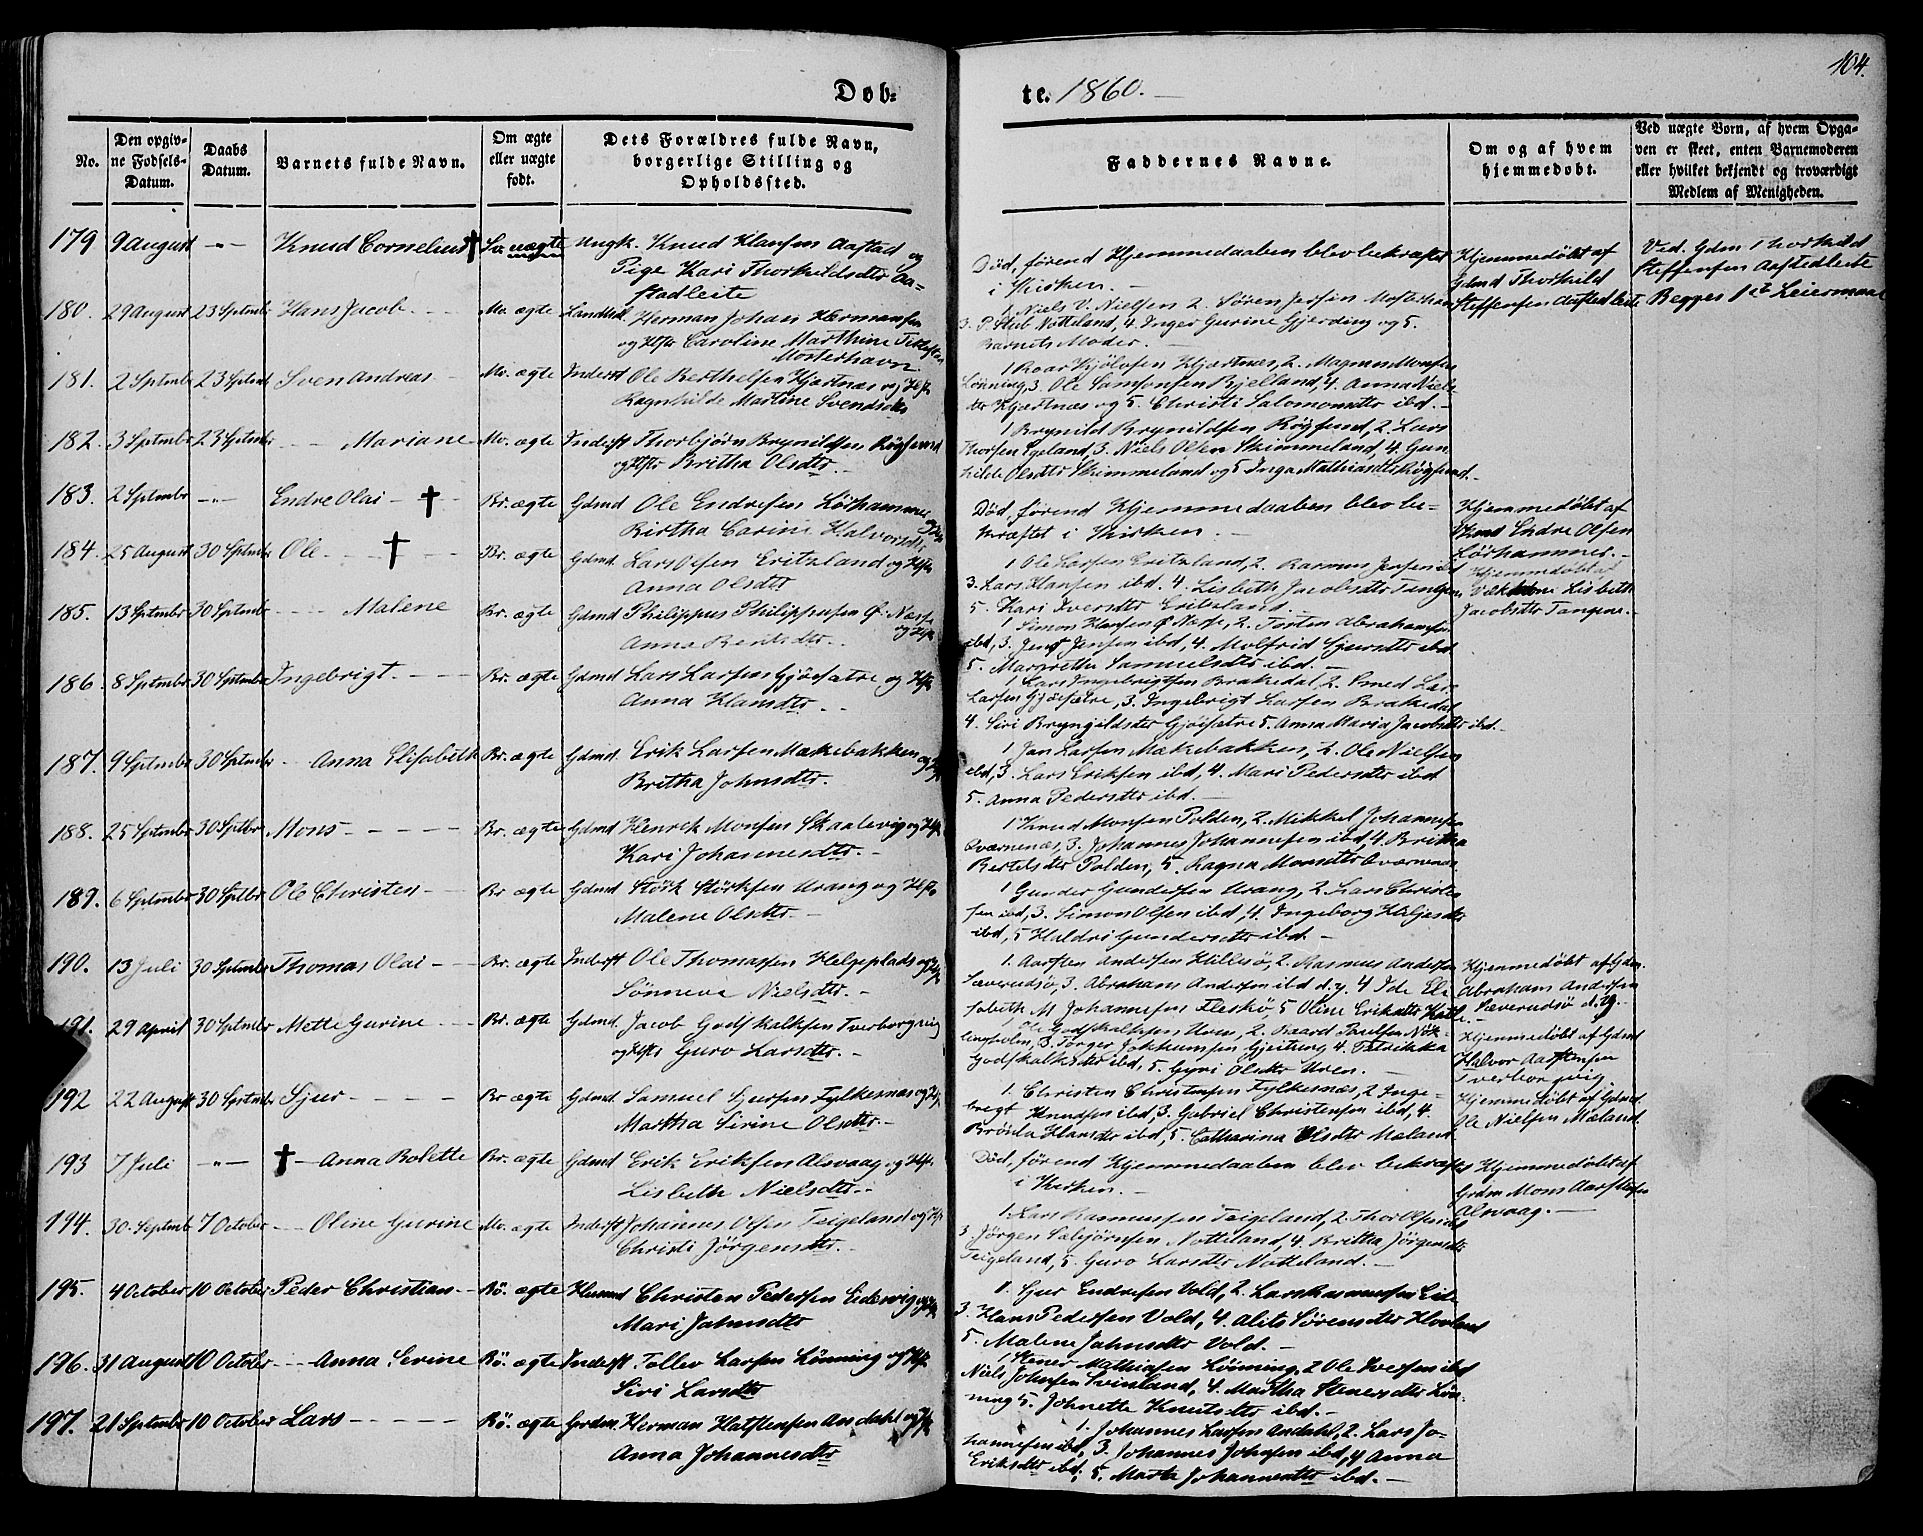 104.
Døb-
te. 1860.
No.
Den opgiv-
ne Fødsels-
Datum.
Daabs
Datum.
Barnets fulde Navn.
Om ægte
eller uægte
født.
Dets Forældres fulde Navn,
borgerlige Stilling og
Opholdssted.
Faddernes Navne.
Om og af hvem
hjemmedøbt.
Ved uægte Børn, af hvem Opga-
ven er skeet, enten Barnemoderen
eller hvilket bekjendt og troværdigt
Medlem af Menigheden.
179 9 August -"- Knud Cornelius † uægte Ungk. Knud Hansen Aastad og
Pige Kari Thorkildsdtr Aa-
stadleite
Død, førend Hjemmedaaben blev bekræftet
i Kirken. -
Hjemmedøbt af
Gdmd Thorkild
Steffensen Aastedleite
Ved. Gdm Thorkild
Steffensen Aastedleite
Begges 1ste Leiermaal
180. 29 August 23 Septmbr Hans Jacob - - Mo. ægte Landhdl. Herman Johan Hermansen
og Hstr Caroline Marthine
Mosterhavn
1 Niels V. Nielsen 2. Søren Jensen Mosterhavn
3. P. Stub Notteland, 4. Inger Gurine Gjerding og 5.
Barnets Moder. -
181. 2 Septmbr 23 Septmbr Sven Andreas - Mo. ægte Inderst Ole Berthelsen Hjertnæs og Hstr
Ragnhilde Martine Svendsdtr
1 Roar Kjølvsen Hjertnæs, 2. Magnus Monsen
Lønning, 3. Ole Samsonsen Bjelland, 4. Anna Niels-
dtr Hjertnæs og 5. Christi Salomonsdtr ibd. -
182. 3 Septmbr 23 Septmbr - - Mariane Mo. ægte Inderst Thorbjørn Brynildsen Røgsund
og Hstr Britha Olsdtr. -
1 Brynild Brynildsen Røgsund, 2. Lars
Thorsen Egeland, 3. Niels Olsen Skimmeland, 4. Gun-
hilde Olsdtr Skimmeland og 5 Inga Mathiasdtr Røgsund. -
183. 2 Septmbr -"- Endre Olai - † Br. ægte Gdmd Ole Endresen Lørhammer og Hstr
Birtha Carine Halvorsdtr
Død, førend Hjemmedaaben blev be-
kræftet i Kirken. -
Hjemmedøbt af
Endre Olsen
Lørhammer. -
184. 25 August 30 Septmbr Ole - - † - - Br. ægte Gdmd. Lars Olsen Eritzland og Hstr
Anna Olsdtr
1 Ole Larsen Eritzland, 2. Rasmus Jensen ibd
3. Lars Hansen ibd. 4. Lisbeth Jacobsdtr Tangen
5. Kari Iversdtr Eritzland. -
Hjemmedøbt af
Lisbeth
Jacobsdtr Tangene. -
185. 13 Septmbr 30 Septmbr - - Malene Br. ægte Gdmd Philippus Philippusen Ø. Næsse
og Hstr
Anna Berntsdtr. -
1 Simon Hansen Ø Næsse, 2. Tosten Abrahamsen
ibd, 3. Jens Jensen ibd, 4. Molfrid Sjursdtr ibd
5. Margrethe Samuelsdtr ibd. -
186. 8 Septmbr 30 Septmbr Ingebrigt. - - - Br. ægte Gdmd Lars Larsen Gjøsætre og Hstr
Anna Hansdtr. -
1 Lars Ingebrigtsen Brakedal, 2. Smed Lars
Larsen Gjøsætre, 3. Ingebrigt Larsen Brakedal
4. Siri Bryngildsdtr Gjøsætre 5. Anna Maria Jacobsdtr ibd. -
187. 9 Septmbr 30 Septmbr - - Anna Elisabeth Br. ægte Gdmd. Erik Larsen Møkebakken og Hstr
Britha Johnsdtr. -
1 Jan Larsen Møkebakken, 2. Ole Nielsen
ibd, 3. Lars Eriksen ibd, 4. Mari Pedersdtr ibd
5. Anna Pedersdtr ibd. -
188. 25 Septmbr 30 Septbr. Mons - - - - Br. ægte Gdmd Henrik Monsen Skaalevig og Hstr
Kari Johannesdtr. -
1 Knud Monsen Polden, 2. Mikkel Johannesen
Qværnenæs, 3. Johannes Johannesen ibd, 4. Britha
Bertelsdtr Polden, 5. Ragna Monsdtr Qværnenæs
189. 6 Septmbr 30 Septbr. Ole Christen - - Br ægte Gdmd. Størk Størksen Urang og Hstr
Malene Olsdtr. -
1 Gunder Gundersen Urang, 2. Lars Christen-
sen ibd, 3. Simon Olsen ibd, 4. Ingeborg
ibd, 5 Haldri Gundersdtr ibd. -
190. 13 Juli 30 Septmbr Thomas Olai - - Br. ægte Inderst Ole Thomassen Helgeplads og Hstr
Sønneva Nielsdtr. -
1. Aarsten Andersen Hillesø, 2. Rasmus Andersen
Sæverudsø, 3. Abraham Andersen ibd d. y. 4 Ide Eli-
sabeth M Johannesen Fleskø, 5 Oline Eriksdtr
Hjemmedøbt af Gdm.
Abraham Andersen
Sæverudsø d. y. -
191. 29 April 30 Septmbr Mette Gurine - - Br. ægte Gdmd. Jacob Godskalksen Tverborgvig
og Hstr Guro Larsdtr. -
1 Ole Godskalksen Uren, 2. Baard Paulsen Nøk-
lingholm, 3. Torger Jokkumsen Gjeitung 4. Petrikka
Godskalksdtr ibd, 5. Gyri Olsdtr Uren. -
Hjemmedøbt af Gdmd
Halvor Aarstensen
Tverborgvig.
192 22 August 30 Septmbr Sjur - - - - Br ægte Gdmd. Samuel Sjursen Fylkesnæs og Hstr
Martha Sirine Olsdtr. -
1. Christen Christensen Fylkesnæs, 2 Inge-
bregt Knudsen ibd, 3. Gabriel Christensen ibd, 4.
Brønla Hansdtr ibd, 5. Catharina Olsdtr Mæland
Hjemmedøbt af Gdmd.
Ole Nielsen Mæland.
193 7 Juli -"- † - Anna Bolette Br. ægte Gdmd Erik Eriksen Alsvaag og Hstr
Lisbeth Nielsdtr. -
Død, førend Hjemmedaaben blev bekræftet
i Kirken. -
Hjemmedøbt af
Grdm Mons Aarstensen
Alsvaag. -
194. 30. Septmbr 7 October - - Oline Gurine Mo. ægte Inderst Johannes Olsen Teigeland og Hstr
Christi Jørgensdtr. -
1 Lars Rasmussen Teigeland, 2. Thor Olsen ibd
3 Jørgen Sæbjørnsen Notteland, 4. Britha Jørgensdtr
Teigeland, 5. Guro Larsdtr Notteland. -
195. 4 October 10 October Peder Christian - - Bø. ægte Husmd Christen Pedersen Eidesvig og Hstr
Mari Jahnsdtr
1. Sjur Endresen Vold, 2. Lars Rasmussen Eide
3. Hans Pedersen Vold, 4. Alits Sørensdtr Hovland
5. Malene Jahnsdtr Vold. -
196. 31 August 10 October - - Anna Serine Bø. ægte Inderst Tollev Larsen Lønning og Hstr
Siri Larsdtr
1 Stener Mathiasen Lønning, 2 Ole Iversen ibd
Niels Johnsen Svinland, 4. Martha Stenersdtr Løn-
ning 5. Johnette Knutsdtr ibd. -
197. 21 Septmbr 10 October Lars - - - - Bø. ægte Grdm. Herman Halstensen Andahl og Hstr
Anna Johannesdtr
1. Johannes Larsen Andahl, 2. Lars Jo-
hannesen ibd, 3. Johannes Johnsen ibd, 4 Anna
Eriksdtr ibd, 5. Marta Johannesdtr ibd. -